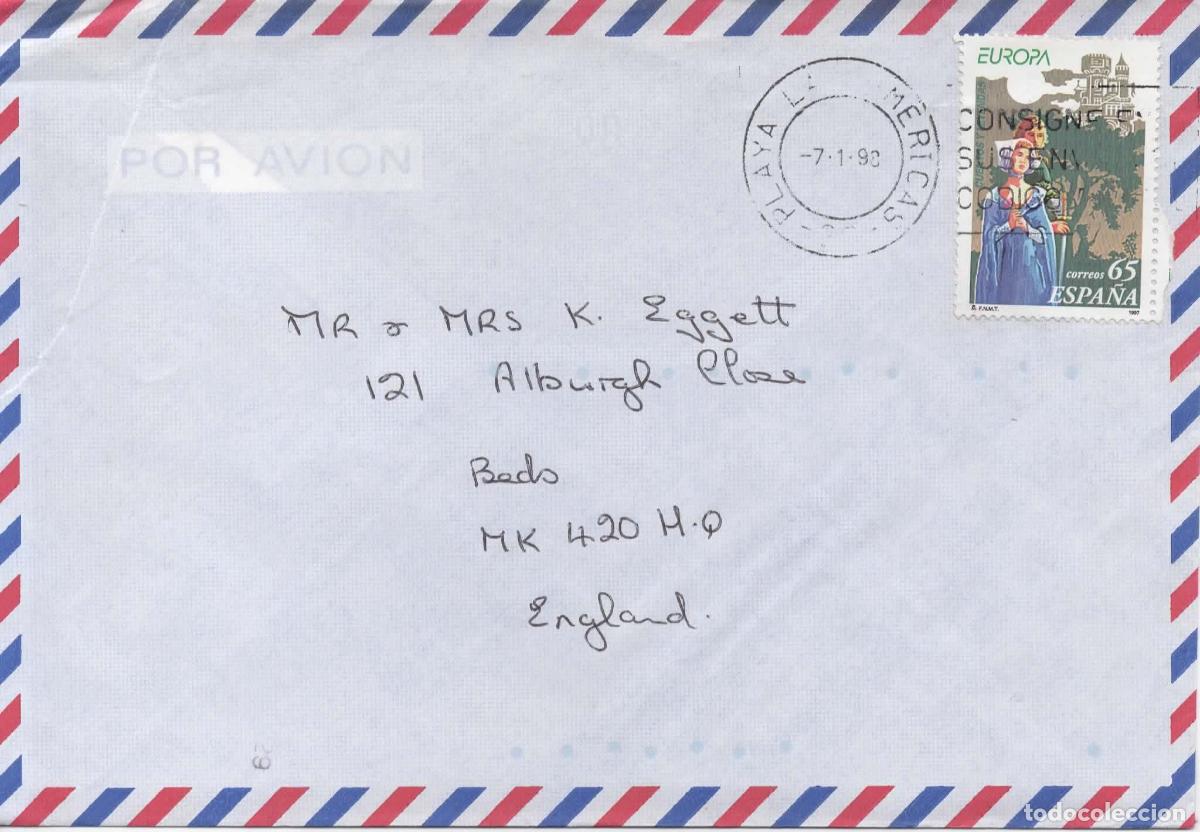 POR AVION
PLAYA L MÉRICAS
-7·1·98
EUROPA
CONSIGNE E
SUS EN
CODIGO
correos 65
ESPAÑA
F.N.M.T. 1997
MR & MRS K. Eggett
121 Alburgh Close
Beds
MK 420 H.Q
England.
todocoleccion